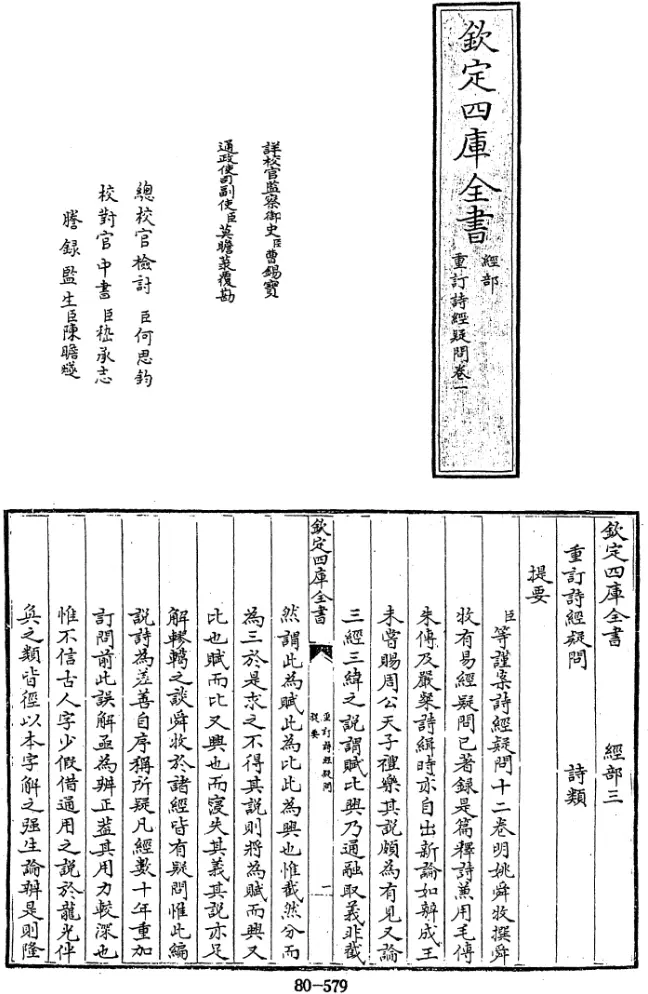 欽定四庫全書
經部
重訂詩經疑問卷一
詳校官監察御史臣曹錫寶
通政使司副使臣莫瞻菉覆勘
總校官檢討臣何思鈞
校對官中書臣嵇承志
謄錄監生臣陳瞻㦂
欽定四庫全書 經部三
重訂詩經疑問 詩類
提要
臣等謹案詩經疑問十二卷明姚舜牧撰舜
牧有易經疑問已著錄是篇釋詩兼用毛傳
朱傳及嚴粲詩緝時亦自出新論如辨成王
未嘗賜周公天子禮樂其說頗為有見又論
三經三緯之說謂賦比興乃通融取義非截
欽定四庫全書
重訂詩經疑問
提要
一
然謂此為賦此為比此為興也惟截然分而
為三於是求之不得其說則將為賦而興又
比也賦而比又興也而寖失其義其說亦足
解轇轕之談舜牧於諸經皆有疑問惟此編
說詩為差善自序稱所疑凡經數十年重加
訂問前此誤解亟為辨正蓋其用力較深也
惟不信古人字少假借通用之說於龍光伴
奐之類皆徑以本字解之强生論辨是則隆
80-579